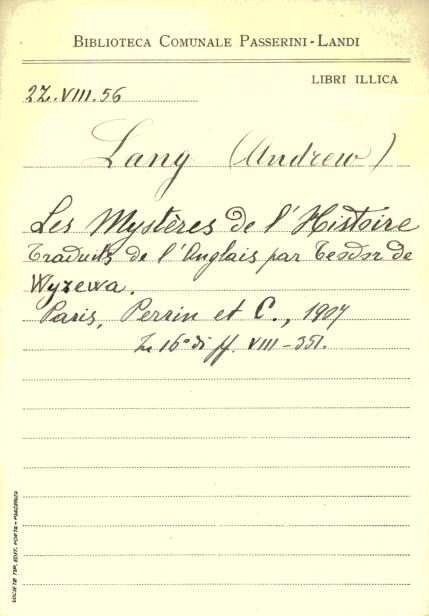 BIBLIOTECA COMUNALE PASSERINI-LANDI
LIBRI ILLICA
2Z.VIII.56
Lang (Andrew)
Les Mystères de l'Histoire
Traduits de l'Anglais par Teodor de
Wyzewa.
Paris, Perrin et C., 1907
In 16° di ff. VIII-351.
SOCIETÀ TIP. EDIT. PORTA - PIACENZA